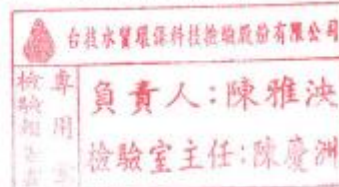 台技水質環保科技檢驗股份有限公司
專用章
檢驗報告書
負責人:陳雅泱
檢驗室主任:陳慶洲